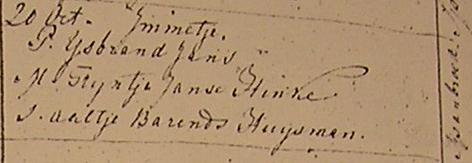 20 Oct. Immetje.
P. Ysbrand Jans
M. Tryntje Janse Hinke
S. Aaltje Barends Huysman.